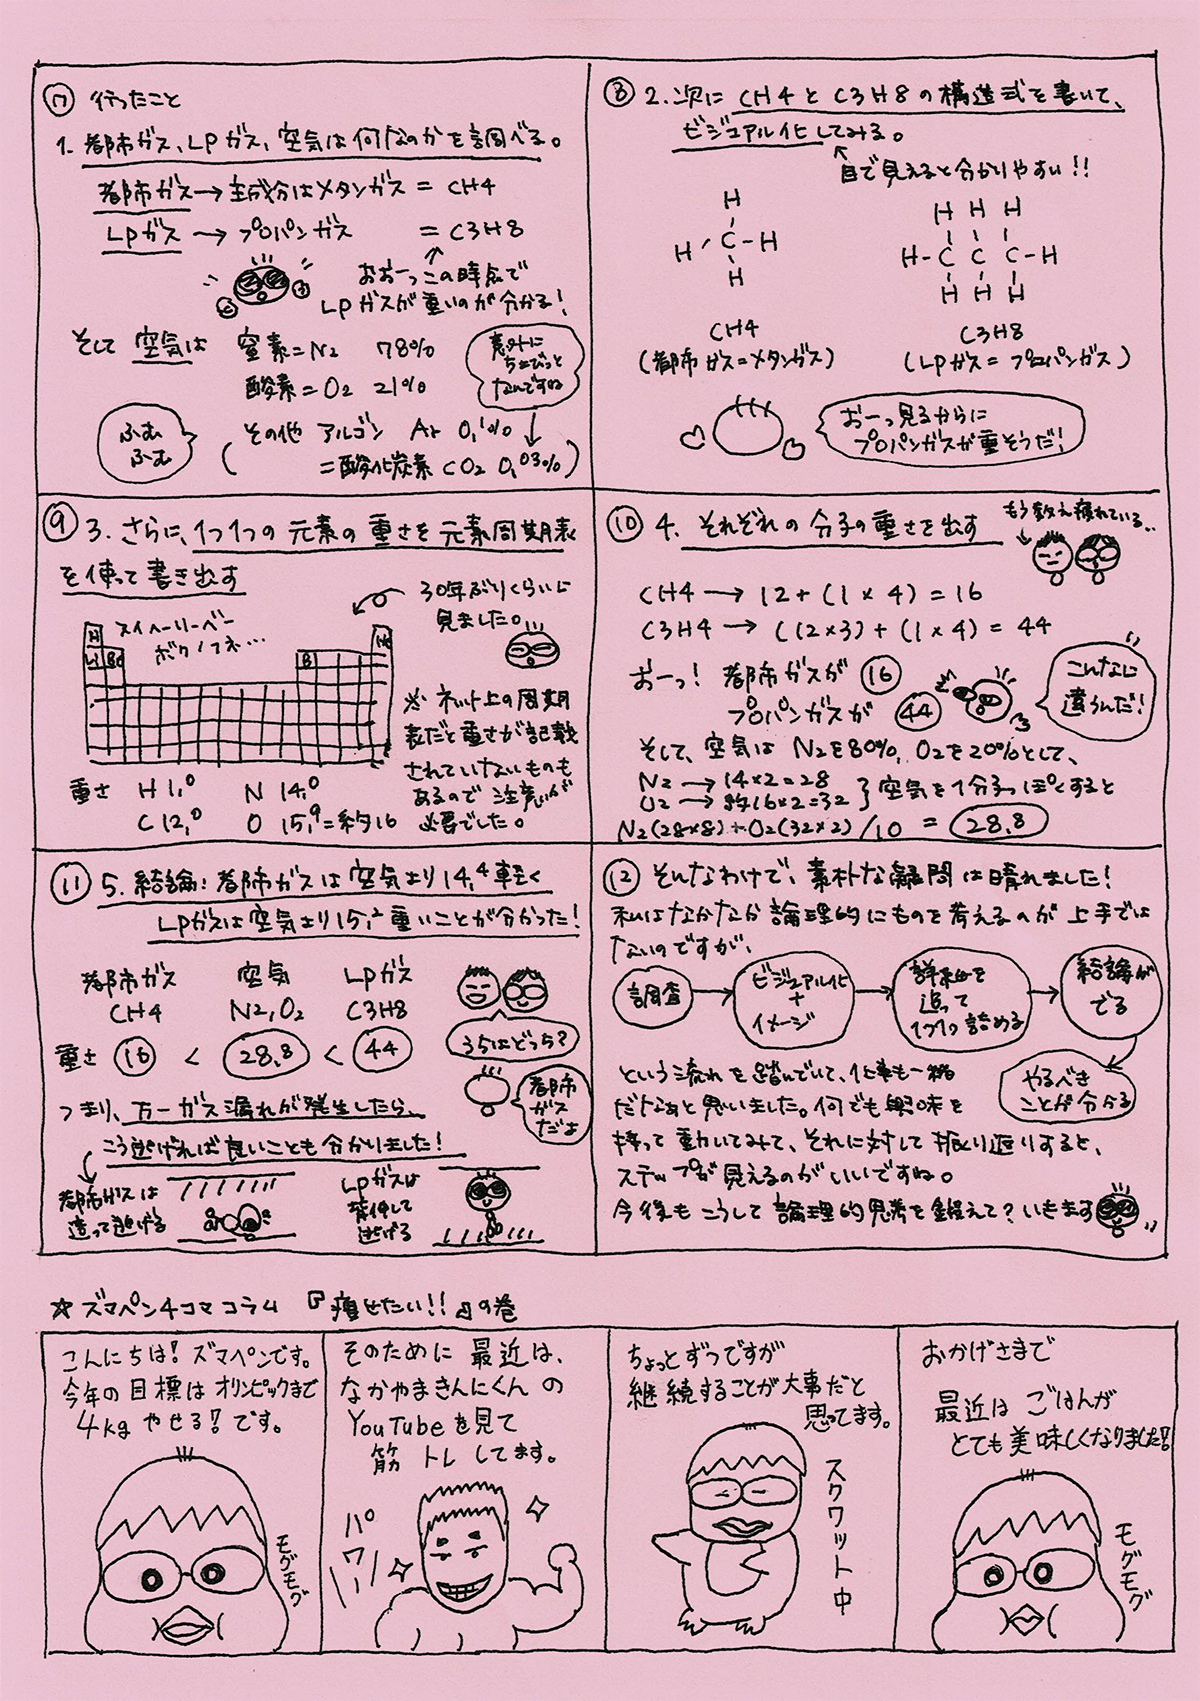 ⑦ 行ったこと
1. 都市ガス、LPガス、空気は何なのかを調べる。
都市ガス→主成分はメタンガス = CH4
LPガス → プロパンガス = C3H8
おおーっこの時点で
LPガスが重いのが分かる!
そして 空気は 窒素=N2 78%
酸素=O2 21%
意外に
ちょびっと
なんですね
ふむ
ふむ
(その他 アルゴン Ar 0,1%
二酸化炭素 CO2 0,03%)
⑧ 2.次に CH4とC3H8の構造式を書いて、
ビジュアル化してみる。
目で見えると分かりやすい!!
H
H - C - H
H
H H H
H - C C C - H
H H H
CH4
(都市ガス=メタンガス)
C3H8
(LPガス= プロパンガス)
おーっ見るからに
プロパンガスが重そうだ!
⑨ 3. さらに、1つ1つの 元素の重さを元素周期表
を使って書き出す
30年ぶりくらいに
見ました。
H He
スイヘーリーベー
ボクノフネ…
Li Be B
※ ネット上の周期
表だと重さが記載
されていないものも
あるので 注意が
必要でした。
重さ H 1,0 N 14,0
C 12,0 O 15,9=約16
⑩ 4. それぞれの 分子の重さを出す
もう数え疲れている..
CH4 → 12+(1×4)=16
C3H4 → (12×3)+(1×4)=44
おーっ! 都市ガスが 16
プロパンガスが 44
こんなに
違うんだ!
そして、空気は N2を80%, O2を20%として、
N2 → 14×2=28
O2 → 約16×2=32 } 空気を1分子っぽくすると
N2(28×8)+O2(32×2)/10 = 28,8
⑪ 5. 結論: 都市ガスは 空気より14,4軽く
LPガスは空気より15,2重いことが分かった!
都市ガス 空気 LPガス
CH4 N2,O2 C3H8
重さ 16 < 28,8 < 44
うちはどっち?
都市
ガス
だよ
つまり、万一ガス漏れが発生したら、
こう逃げれば良いことも分かりました!
都市ガスは
這って逃げる
LPガスは
背伸して
逃げる
⑫ そんなわけで、素朴な疑問は晴れました!
私はなかなか論理的にものを考えるのが上手では
ないのですが、
調査 → ビジュアル化
+
イメージ → 詳細を
追って
1つ1つ詰める → 結論が
でる
やるべき
ことが分かる
という流れを踏んでいて、仕事も一緒
だなぁと思いました。何でも興味を
持って動いてみて、それに対して振り返りすると、
ステップが見えるのがいいですね。
今後もこうして論理的思考を鍛えて?いきます
☆ ズマペン4コマコラム 『痩せたい!!』の巻
こんにちは! ズマペンです。
今年の目標は オリンピックまで
4kg やせる! です。
モグモグ
そのために 最近は、
なかやまきんにくんの
YouTubeを見て
筋トレしてます。
パワー!!
ちょっとずつですが
継続することが大事だと
思ってます。
スクワット中
おかげさまで
最近は ごはんが
とても美味しくなりました!
モグモグ